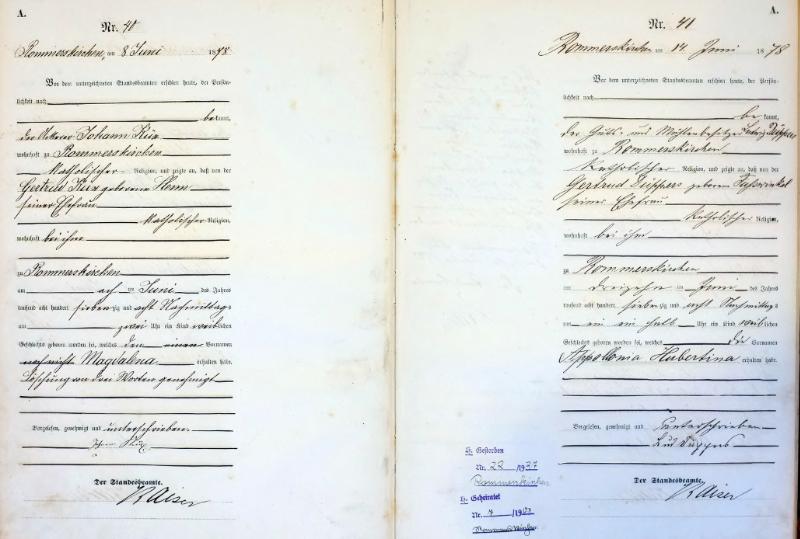 A.
Nr. 40
Rommerskirchen, am 8 Juni 1878
Vor dem unterzeichneten Standesbeamten erschien heute, der Persön-
lichkeit nach
bekannt,
der Johann Kux
wohnhaft zu Rommerskirchen
Katholischer Religion, und zeigte an, daß von der
Gertrud Kux geborene
seiner Ehefrau
Katholischer Religion,
wohnhaft bei ihm
zu Rommerskirchen
am acht ten Juni des Jahres
tausend acht hundert siebenzig und acht Nachmittags
um zwei Uhr ein Kind weiblichen
Geschlechts geboren worden sei, welches den einen Vornamen
noch nicht Magdalena erhalten habe.
Löschung von drei Worten genehmigt
Vorgelesen, genehmigt und unterschrieben
Kux
Der Standesbeamte.
Kaiser
A.
Nr. 41
Rommerskirchen am 14 Juni 1878
Vor dem unterzeichneten Standesbeamten erschien heute, der Persön-
lichkeit nach
bekannt,
der Guts- und Mühlenbesitzer Düppers
wohnhaft zu Rommerskirchen
Katholischer Religion, und zeigte an, daß von der
Gertrud Düppers geborene
seiner Ehefrau
Katholischer Religion,
wohnhaft bei ihm
zu Rommerskirchen
am dreizehn ten Juni des Jahres
tausend acht hundert siebenzig und acht Nachmittags
um ein ein halb Uhr ein Kind weiblichen
Geschlechts geboren worden sei, welches die Vornamen
Appollonia Hubertina erhalten habe.
Vorgelesen, genehmigt und unterschrieben
Düppers
Der Standesbeamte.
Kaiser
Gestorben
Nr. 22 /1937
Rommerskirchen
Geheiratet
Nr.